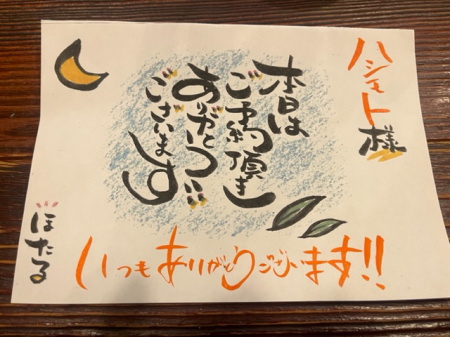 ハシモト様
本日は
ご予約頂き
ありがとう
ございます
いつもありがとうございます!!
ほたる